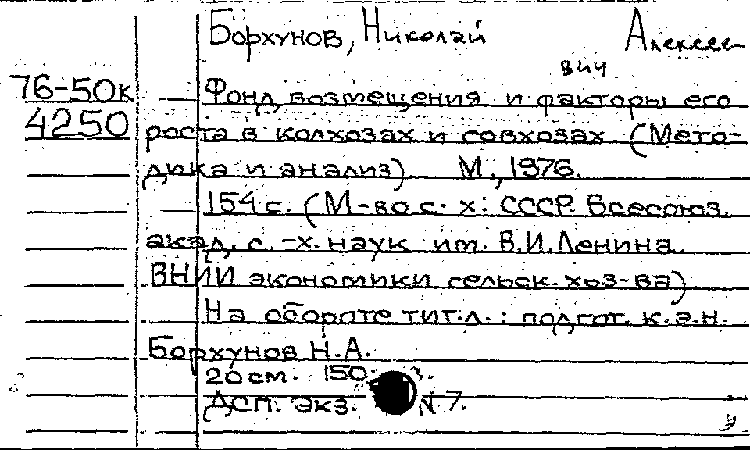 Борхунов, Николай Алексее-
вич
76-50к Фонд возмещения и факторы его
4250 роста в колхозах и совхозах (Мето-
дика и анализ) М., 1976.
154 с. (М-во с. х: СССР. Всесоюз.
акад. с.-х. наук им. В.И. Ленина.
ВНИИ экономики сельск. хоз-ва)
На обороте тит. л.: подгот. к.э.н.
Борхунов Н.А.
20 см. 150
Дсп. экз. N 7.